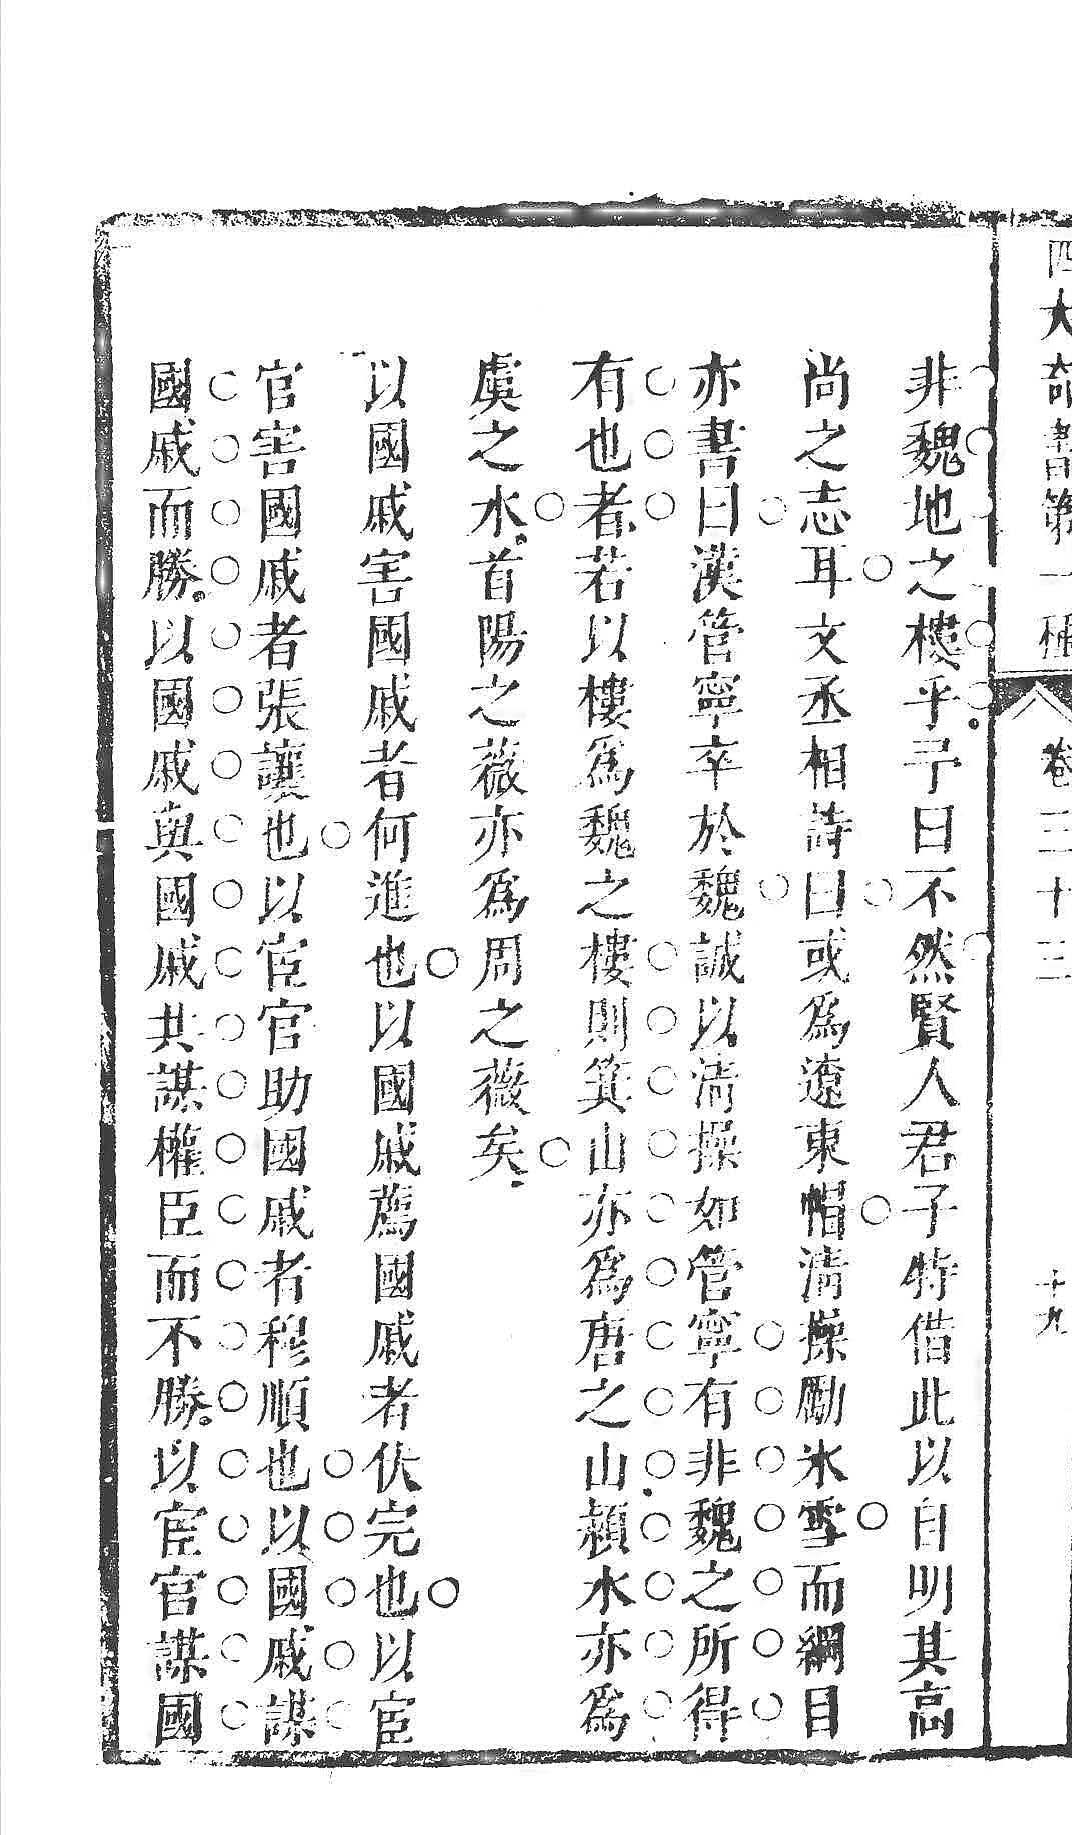 四大奇書第一種 卷三十三 十九
非魏地之樓乎予曰不然賢人君子特借此以自明其高
尚之志耳文丞相詩曰或爲遼東帽清操勵氷雪而綱目
亦書曰漢管寧卒於魏誠以清操如管寧有非魏之所得
有也者若以樓爲魏之樓則箕山亦爲唐之山潁水亦爲
虞之水首陽之薇亦爲周之薇矣
以國戚害國戚者何進也以國戚薦國戚者伏完也以宦
官害國戚者張讓也以宦官助國戚者穆順也以國戚謀
國戚而勝以國戚與國戚共謀權臣而不勝以宦官謀國